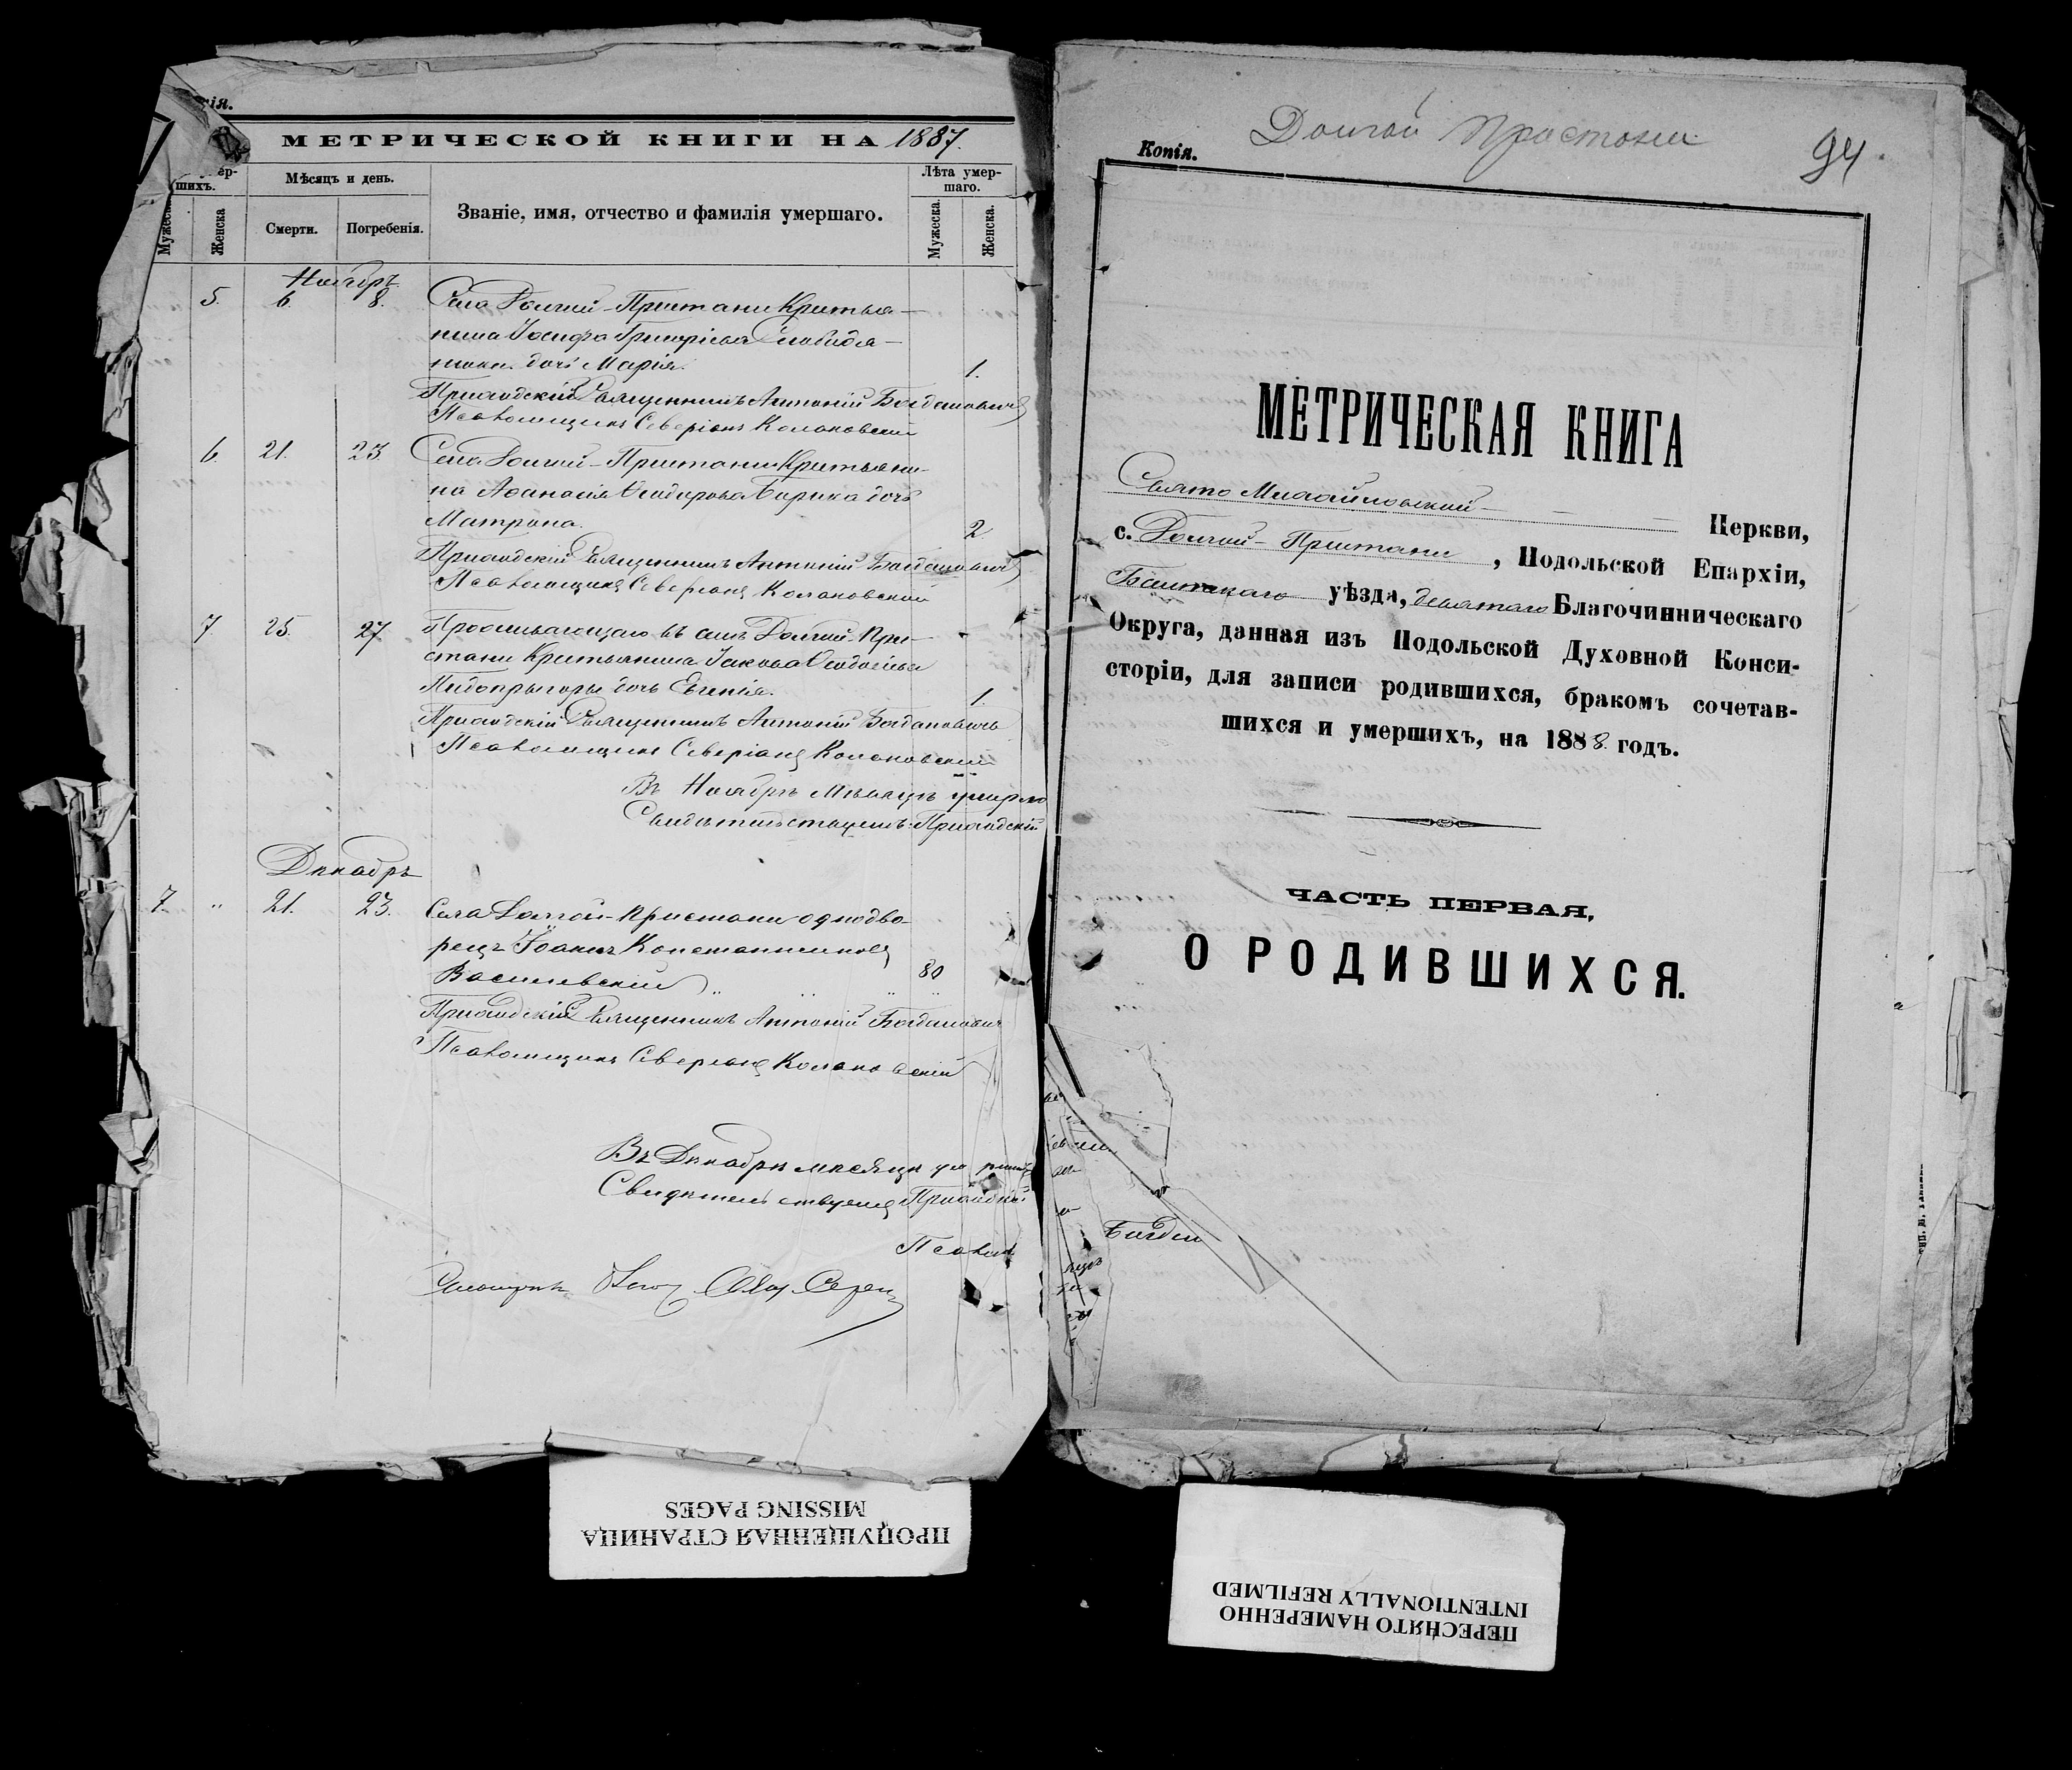 МЕТРИЧЕСКОЙ КНИГИ НА 1887.
шихъ.
Мѣсяцъ и день.
Званіе, имя, отчество и фамилія умершаго.
Лѣта умер-
шаго.
Мужеска.
Женска
Смерти.
Погребенія.
Мужеска.
Женска.
Ноябрь
5. 6. 8. Села Долгой-Пристани Крестья-
нина Іосифа Григоріева Слободя-
ника дочь Марія. 1.
Приходскій Священникъ Антоній Богдановичъ
Псаломщикъ Северіанъ Колаковскій
6. 21. 23. Села Долгой-Пристани Крестьяни-
на Афанасія Ѳеодорова дочь
Матрона. 2
Приходскій Священникъ Антоній Богдановичъ
Псаломщикъ Северіанъ Колаковскій
7 25. 27. Проживающаго въ селѣ Долгой-При-
стани Крестьянина Іакова
дочь Евгенія. 1.
Приходскій Священникъ Антоній Богдановичъ
Псаломщикъ Северіанъ Колаковскій
Въ Ноябрѣ Мѣсяцѣ умерло
Свидѣтельствуемъ: Приходскій
Декабрь
7. " 21. 23. Села Долгой-Пристани однодво-
рецъ Іоаннъ Константиновъ
Василевскій 80
Приходскій Священникъ Антоній Богдановичъ
Псаломщикъ Северіанъ Колаковскій
Въ Декабрѣ мѣсяцѣ
Свидѣтельствуемъ Приходскій
Псалом
ПРОПУЩЕННАЯ СТРАНИЦА
MISSING PAGES
Долгой Пристани
94.
Копія.
МЕТРИЧЕСКАЯ КНИГА
Свято Михайловской Церкви,
с. Долгой-Пристани, Подольской Епархіи,
Балтскаго уѣзда, девятаго Благочинническаго
Округа, данная изъ Подольской Духовной Конси-
сторіи, для записи родившихся, бракомъ сочетав-
шихся и умершихъ, на 1888. годъ.
ЧАСТЬ ПЕРВАЯ,
О РОДИВШИХСЯ.
ПЕРЕСНЯТО НАМЕРЕННО
INTENTIONALLY REFILMED